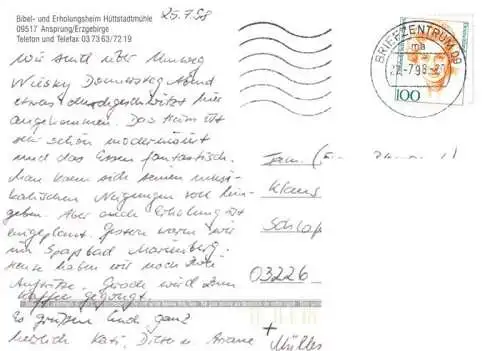 Bibel- und Erholungsheim Hüttstadtmühle
09517 Ansprung/Erzgebirge
Telefon und Telefax 03 73 63/72 19
25.7.98
Wir sind über Umweg
Donnerstag Abend
etwas durchgeschwitzt hier
angekommen. Das Heim ist
sehr schön modernisiert
und das Essen fantastisch.
Man kann sich seinen musi-
kalischen Neigungen voll hin-
geben. Aber auch Erholung ist
eingeplant. Gestern waren wir
im Spaßbad Marienberg.
Heute haben wir noch
Auftritte. Gerade wird zum
Kaffee
Es grüßen Euch ganz
herzlich Kati, u.
+
BRIEFZENTRUM 09
ma
-7.98-20
100
Fam.
Klaus
03226